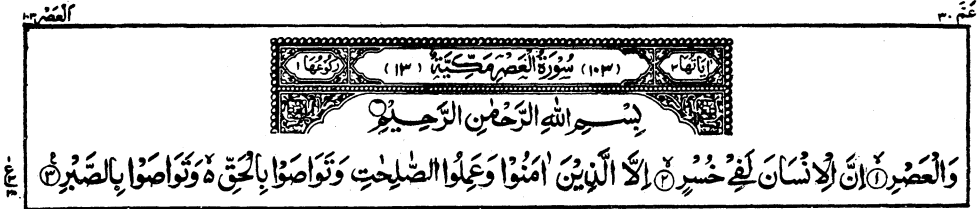 عَمَّ ٣٠
العَصْر ١٠٣
اٰيَاتُهَا ٣ (١٠٣) سُوْرَةُ الْعَصْرِ مَكِّيَّةٌ (١٣) رُكُوْعُهَا ١
بِسْمِ اللّٰهِ الرَّحْمٰنِ الرَّحِيْمِ
وَالْعَصْرِ ۙ ١ اِنَّ الْاِنْسَانَ لَفِيْ خُسْرٍ ۙ ٢ اِلَّا الَّذِيْنَ اٰمَنُوْا وَعَمِلُوا الصّٰلِحٰتِ وَتَوَاصَوْا بِالْحَقِّ ۙ۬ وَتَوَاصَوْا بِالصَّبْرِ ٣